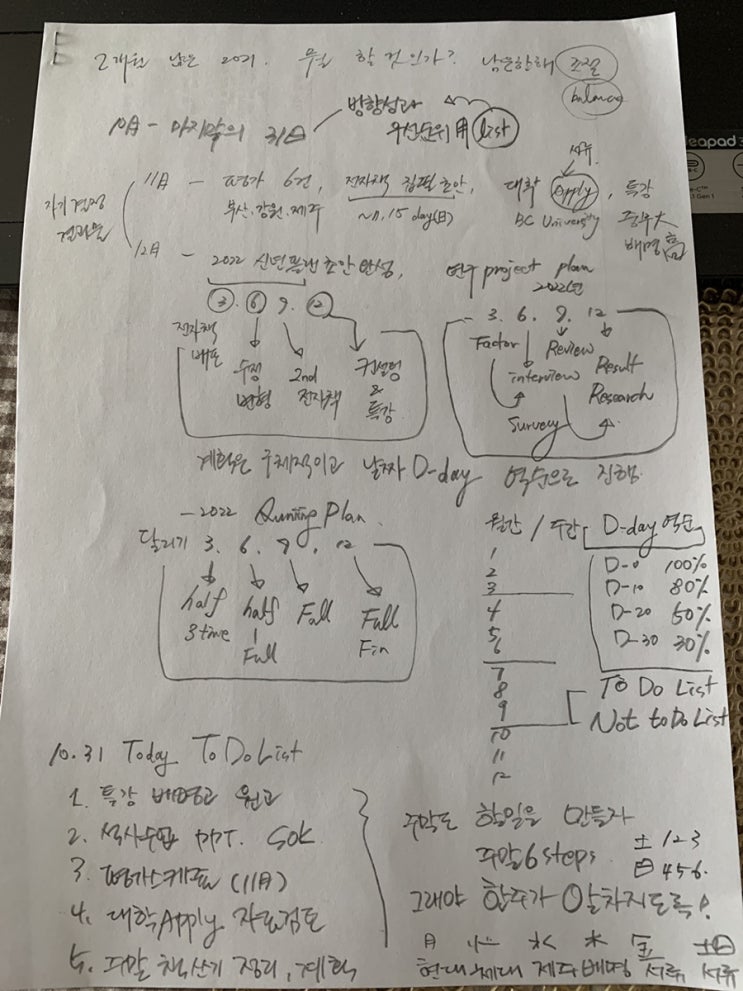 2개월 남은 2021. 무얼 할 것인가? 남은한해 조절
balance
10月 - 마지막의 31日
방향성과
우선순위 用 list
서류
11月 - 평가 6건, 전자책 집필 초안, 대학 Apply, 특강
부산.강원.제주 ~11.15 day(日) BC University 중부大
배명高
자기결정
결과물
12月 - 2022 신년플랜 초안 완성, 연구 project plan
2022년
3. 6. 9. 12
전자책
배포
수정
변형
2nd
전자책
컨설팅
&
특강
3. 6. 9. 12
Factor
interview
Review
Result
Research
Survey
계획은 구체적이고 날짜 D-day 역순으로 진행.
- 2022 Running Plan
달리기 3. 6. 9. 12
half
3 time
half
Full
Full
Full
Fin
월간 / 주간 D-day 역순
1
2
3
4
5
6
7
8
9
10
11
12
D-0 100%
D-10 80%
D-20 50%
D-30 30%
TO DO LIST
Not to Do List
10.31 Today TO DO LIST
1. 특강 배명고 원고
2. 석사수업 PPT. SOK
3. 평가스케쥴 (11月)
4. 대학 Apply 자료검토
5. 주말 책쓰기 정리, 계획
주말도 할일을 만들자
주말 6 steps 土 1 2 3
日 4 5 6.
그래야 한주가 알차지도록!
月 火 水 木 金 土 日
현대 제대 제주 배명 서류 서류